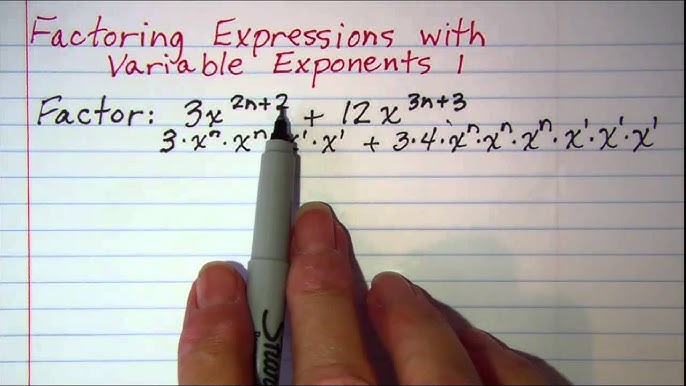 Factoring Expressions with
Variable Exponents 1
Factor: 3x^{2n+2} + 12x^{3n+3}
3·x^n·x^n·x^1·x^1 + 3·4·x^n·x^n·x^n·x^1·x^1·x^1